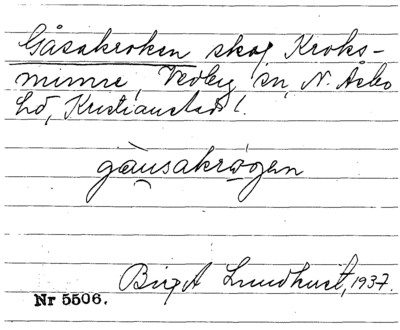 Gåsakroken skog Kroks-
minne, Vedby sn, N. Åsbo
hd, Kristianstads l.
gàusakrògen
Birgit Lundhust, 1937.
Nr 5506.